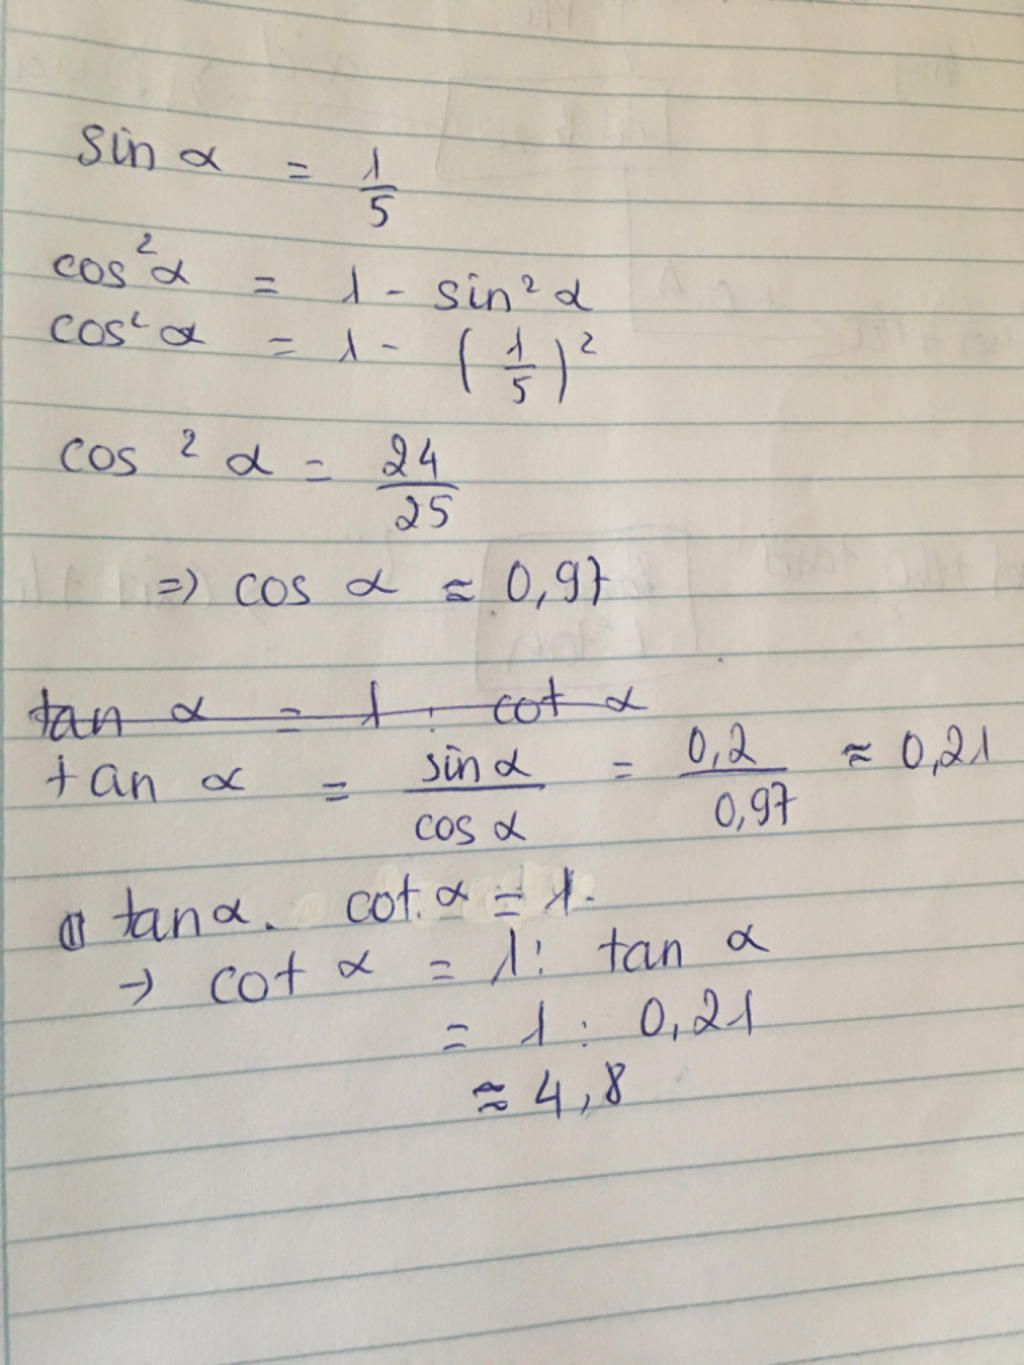 sin α = 1/5
cos²α = 1 - sin²α
cos²α = 1 - (1/5)²
cos²α = 24/25
=> cos α ≈ 0,97
tan α = 1 : cot α
tan α = sinα/cosα = 0,2/0,97 ≈ 0,21
tanα. cot.α = 1.
→ cot α = 1: tan α
= 1 : 0,21
≈ 4,8